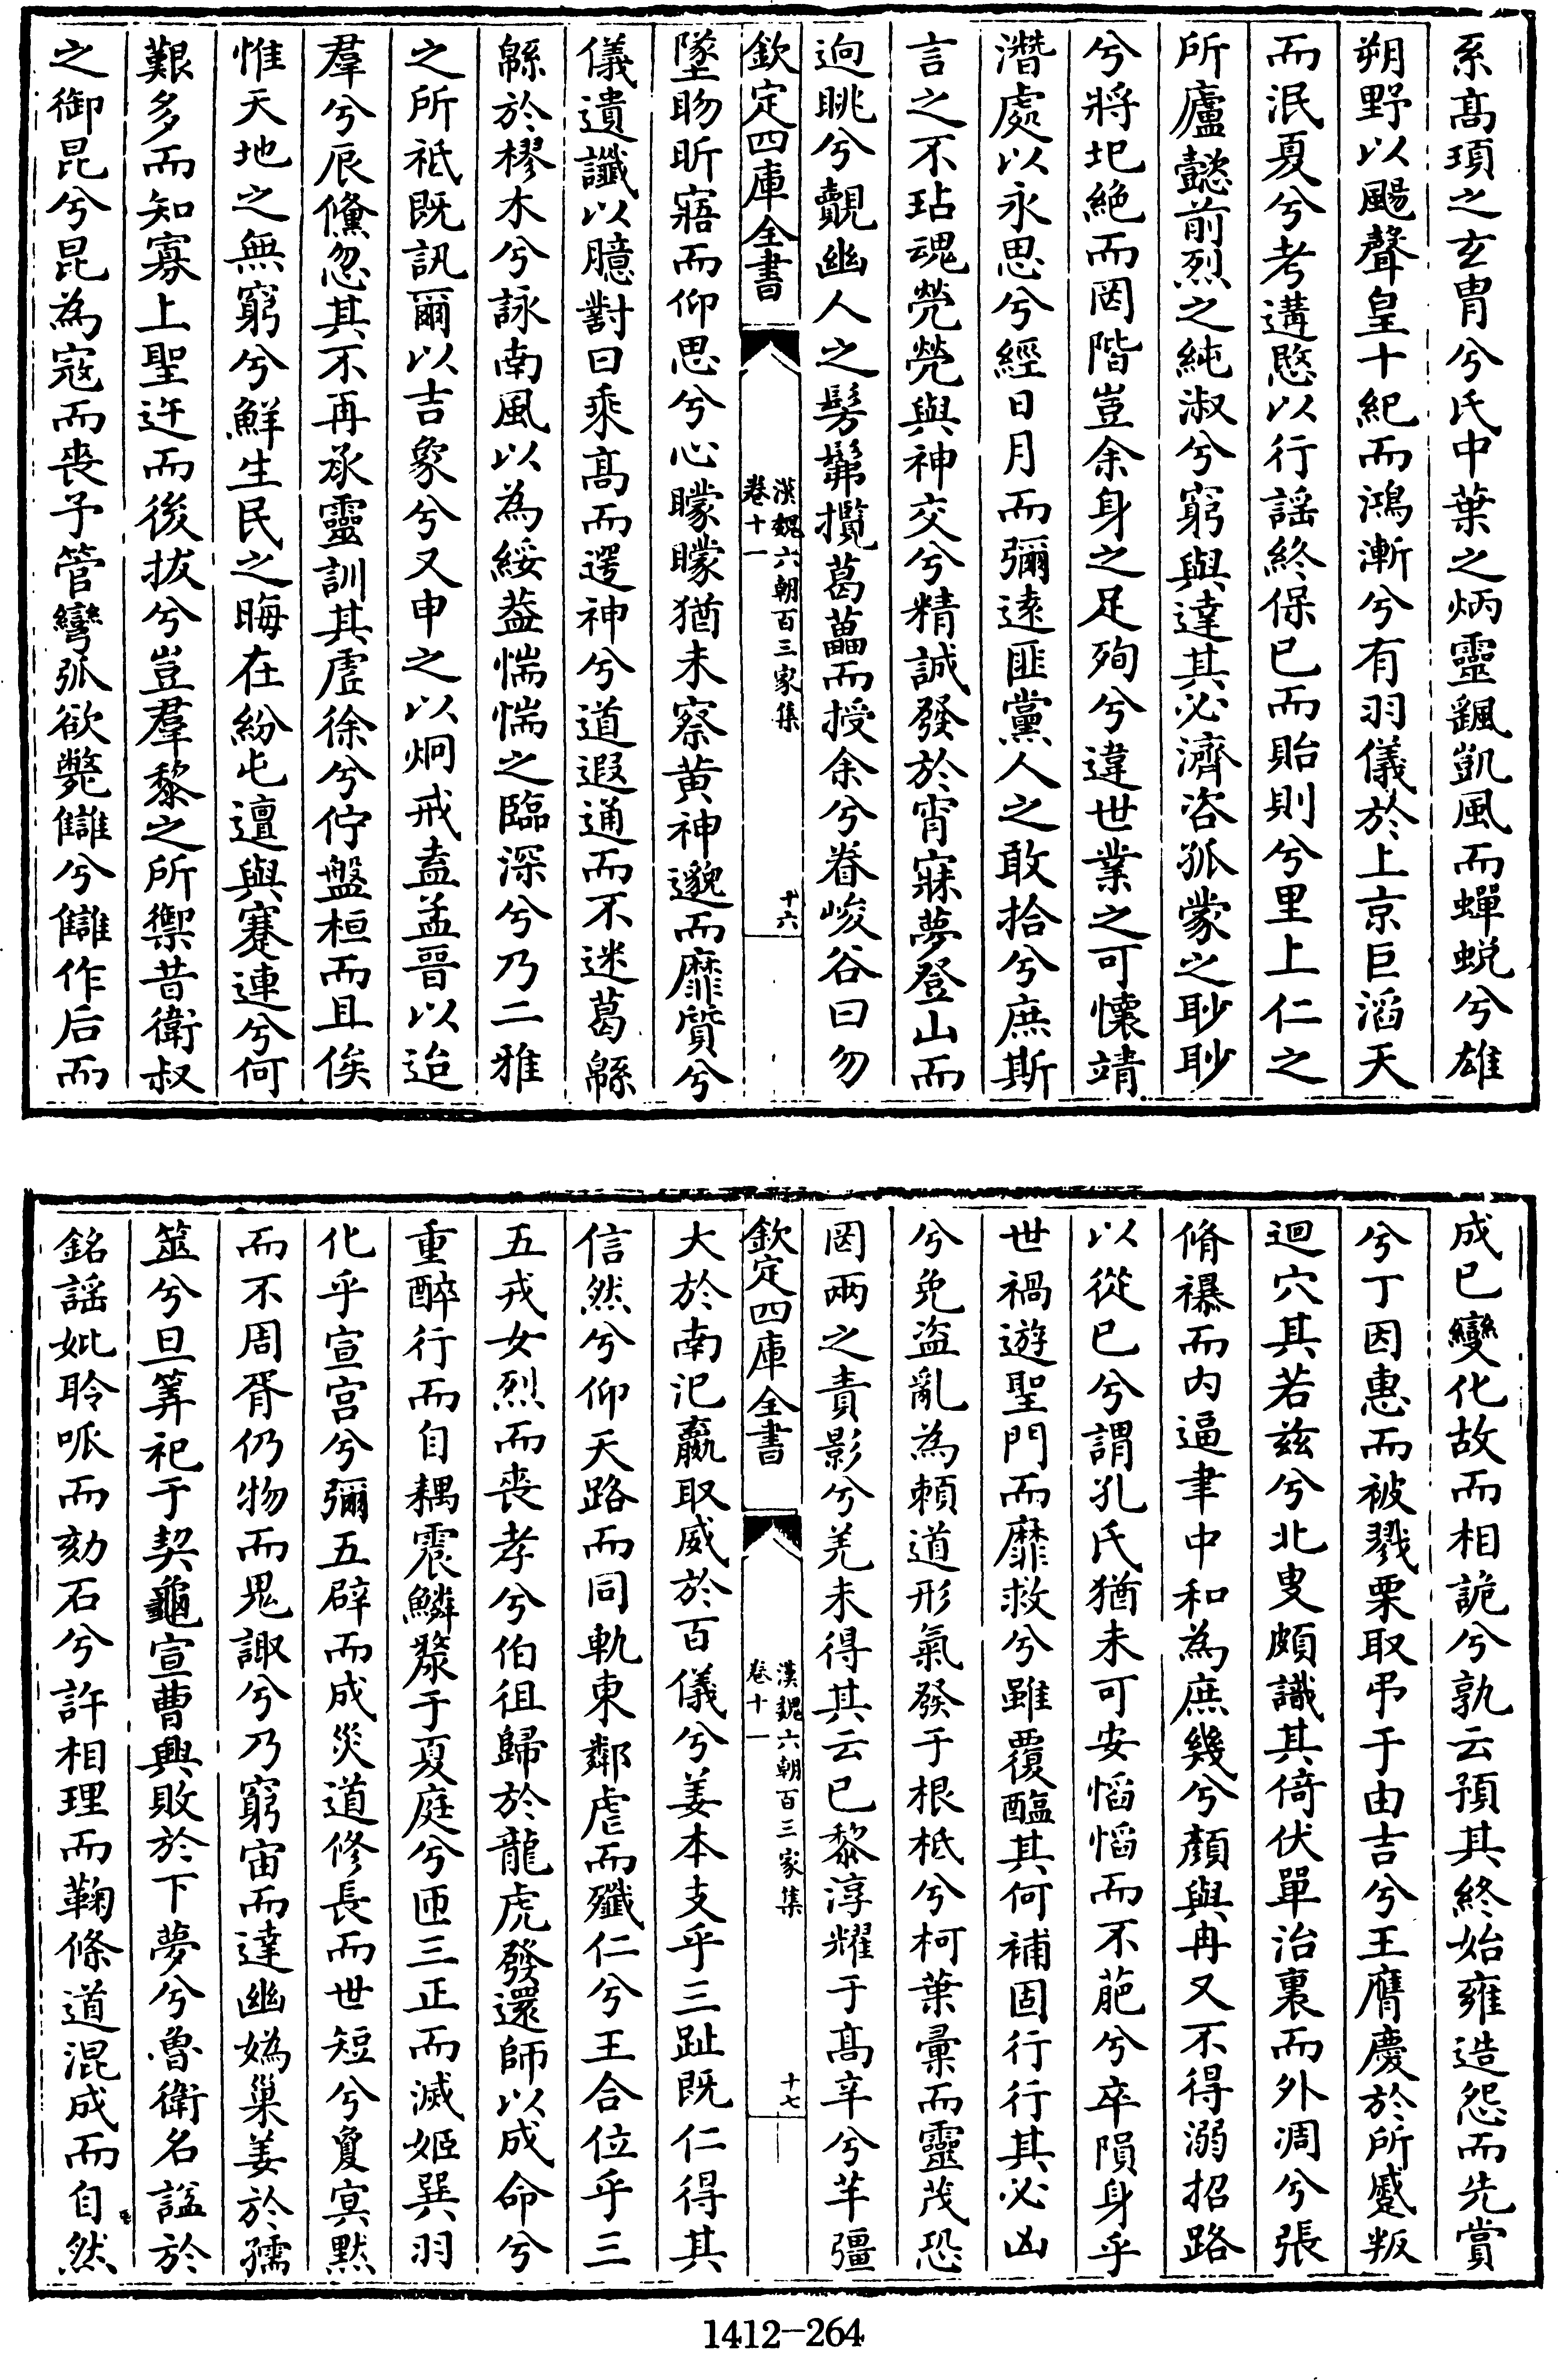 系髙頊之玄胄兮氏中葉之炳靈飄凱風而蟬蜕兮雄
朔野以颺聲皇十紀而鴻漸兮有羽儀於上京巨滔天
而泯夏兮考遘愍以行謡終保已而貽則兮里上仁之
所廬懿前烈之純淑兮窮與達其必濟咨孤蒙之眇眇
兮將圮絶而罔階豈余身之足殉兮違世業之可懷靖
潛處以永思兮經日月而彌逺匪黨人之敢拾兮庶斯
言之不玷魂煢煢與神交兮精誠發於宵寐夢登山而
逈眺兮覿幽人之髣髴攬葛藟而授余兮眷峻谷曰勿
欽定四庫全書
漢魏六朝百三家集
卷十一
十六
墜昒昕寤而仰思兮心矇矇猶未察黄神邈而靡質兮
儀遺讖以臆對曰乘髙而遌神兮道遐通而不迷葛緜
緜於樛木兮詠南風以為綏葢惴惴之臨深兮乃二雅
之所祗既訊爾以吉象兮又申之以炯戒盍孟晉以迨
羣兮辰儵忽其不再承靈訓其虚徐兮佇盤桓而且俟
惟天地之無窮兮鮮生民之晦在紛屯邅與蹇連兮何
艱多而知寡上聖迕而後拔兮豈羣黎之所禦昔衛叔
之御昆兮昆為寇而喪予管彎弧欲斃讎兮讎作后而
成已變化故而相詭兮孰云預其終始雍造怨而先賞
兮丁因惠而被戮栗取弔于由吉兮王膺慶於所慼叛
迴穴其若兹兮北叟頗識其倚伏單治裏而外凋兮張
脩襮而内逼聿中和為庶幾兮顔與冉又不得溺招路
以從已兮謂孔氏猶未可安慆慆而不萉兮卒隕身乎
世禍遊聖門而靡救兮雖覆醢其何補固行行其必凶
兮免盗亂為頼道形氣發于根柢兮柯葉彚而靈茂恐
罔兩之責影兮羌未得其云已黎淳耀于髙辛兮芊彊
欽定四庫全書
漢魏六朝百三家集
卷十一
十七
大於南汜嬴取威於百儀兮姜本支乎三趾既仁得其
信然兮仰天路而同軌東鄰虐而殲仁兮王合位乎三
五戎女烈而喪孝兮伯徂歸於龍虎發還師以成命兮
重醉行而自耦震鱗漦于夏庭兮匝三正而滅姬巽羽
化乎宣宫兮彌五辟而成災道修長而世短兮夐冥黙
而不周胥仍物而鬼諏兮乃窮宙而達幽媯巢姜於孺
筮兮旦筭祀于契龜宣曹興敗於下夢兮魯衛名諡於
銘謡妣聆呱而劾石兮許相理而鞠條道混成而自然
1412-264